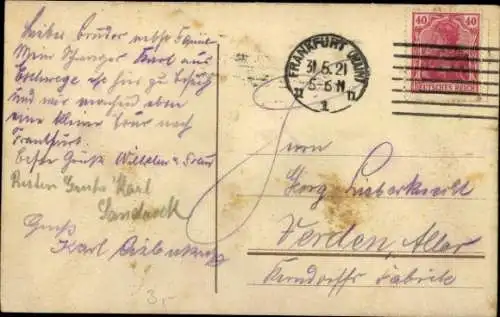 Lieber Bruder nebst Familie
Mein Schwager Karl aus
Eschwege ist hier zu Besuch
und wir machen eben
eine kleine Tour nach
Frankfurt.
Beste Grüße Wilhelm u. Frau
Besten Gruß Karl
Sandrock
Gruß
Karl
3,-
FRANKFURT (MAIN)
31.5.21
5-6 N
1
40 40
DEUTSCHES REICH
Herrn
Georg Lieberknecht
Verden, Aller
Fabrik